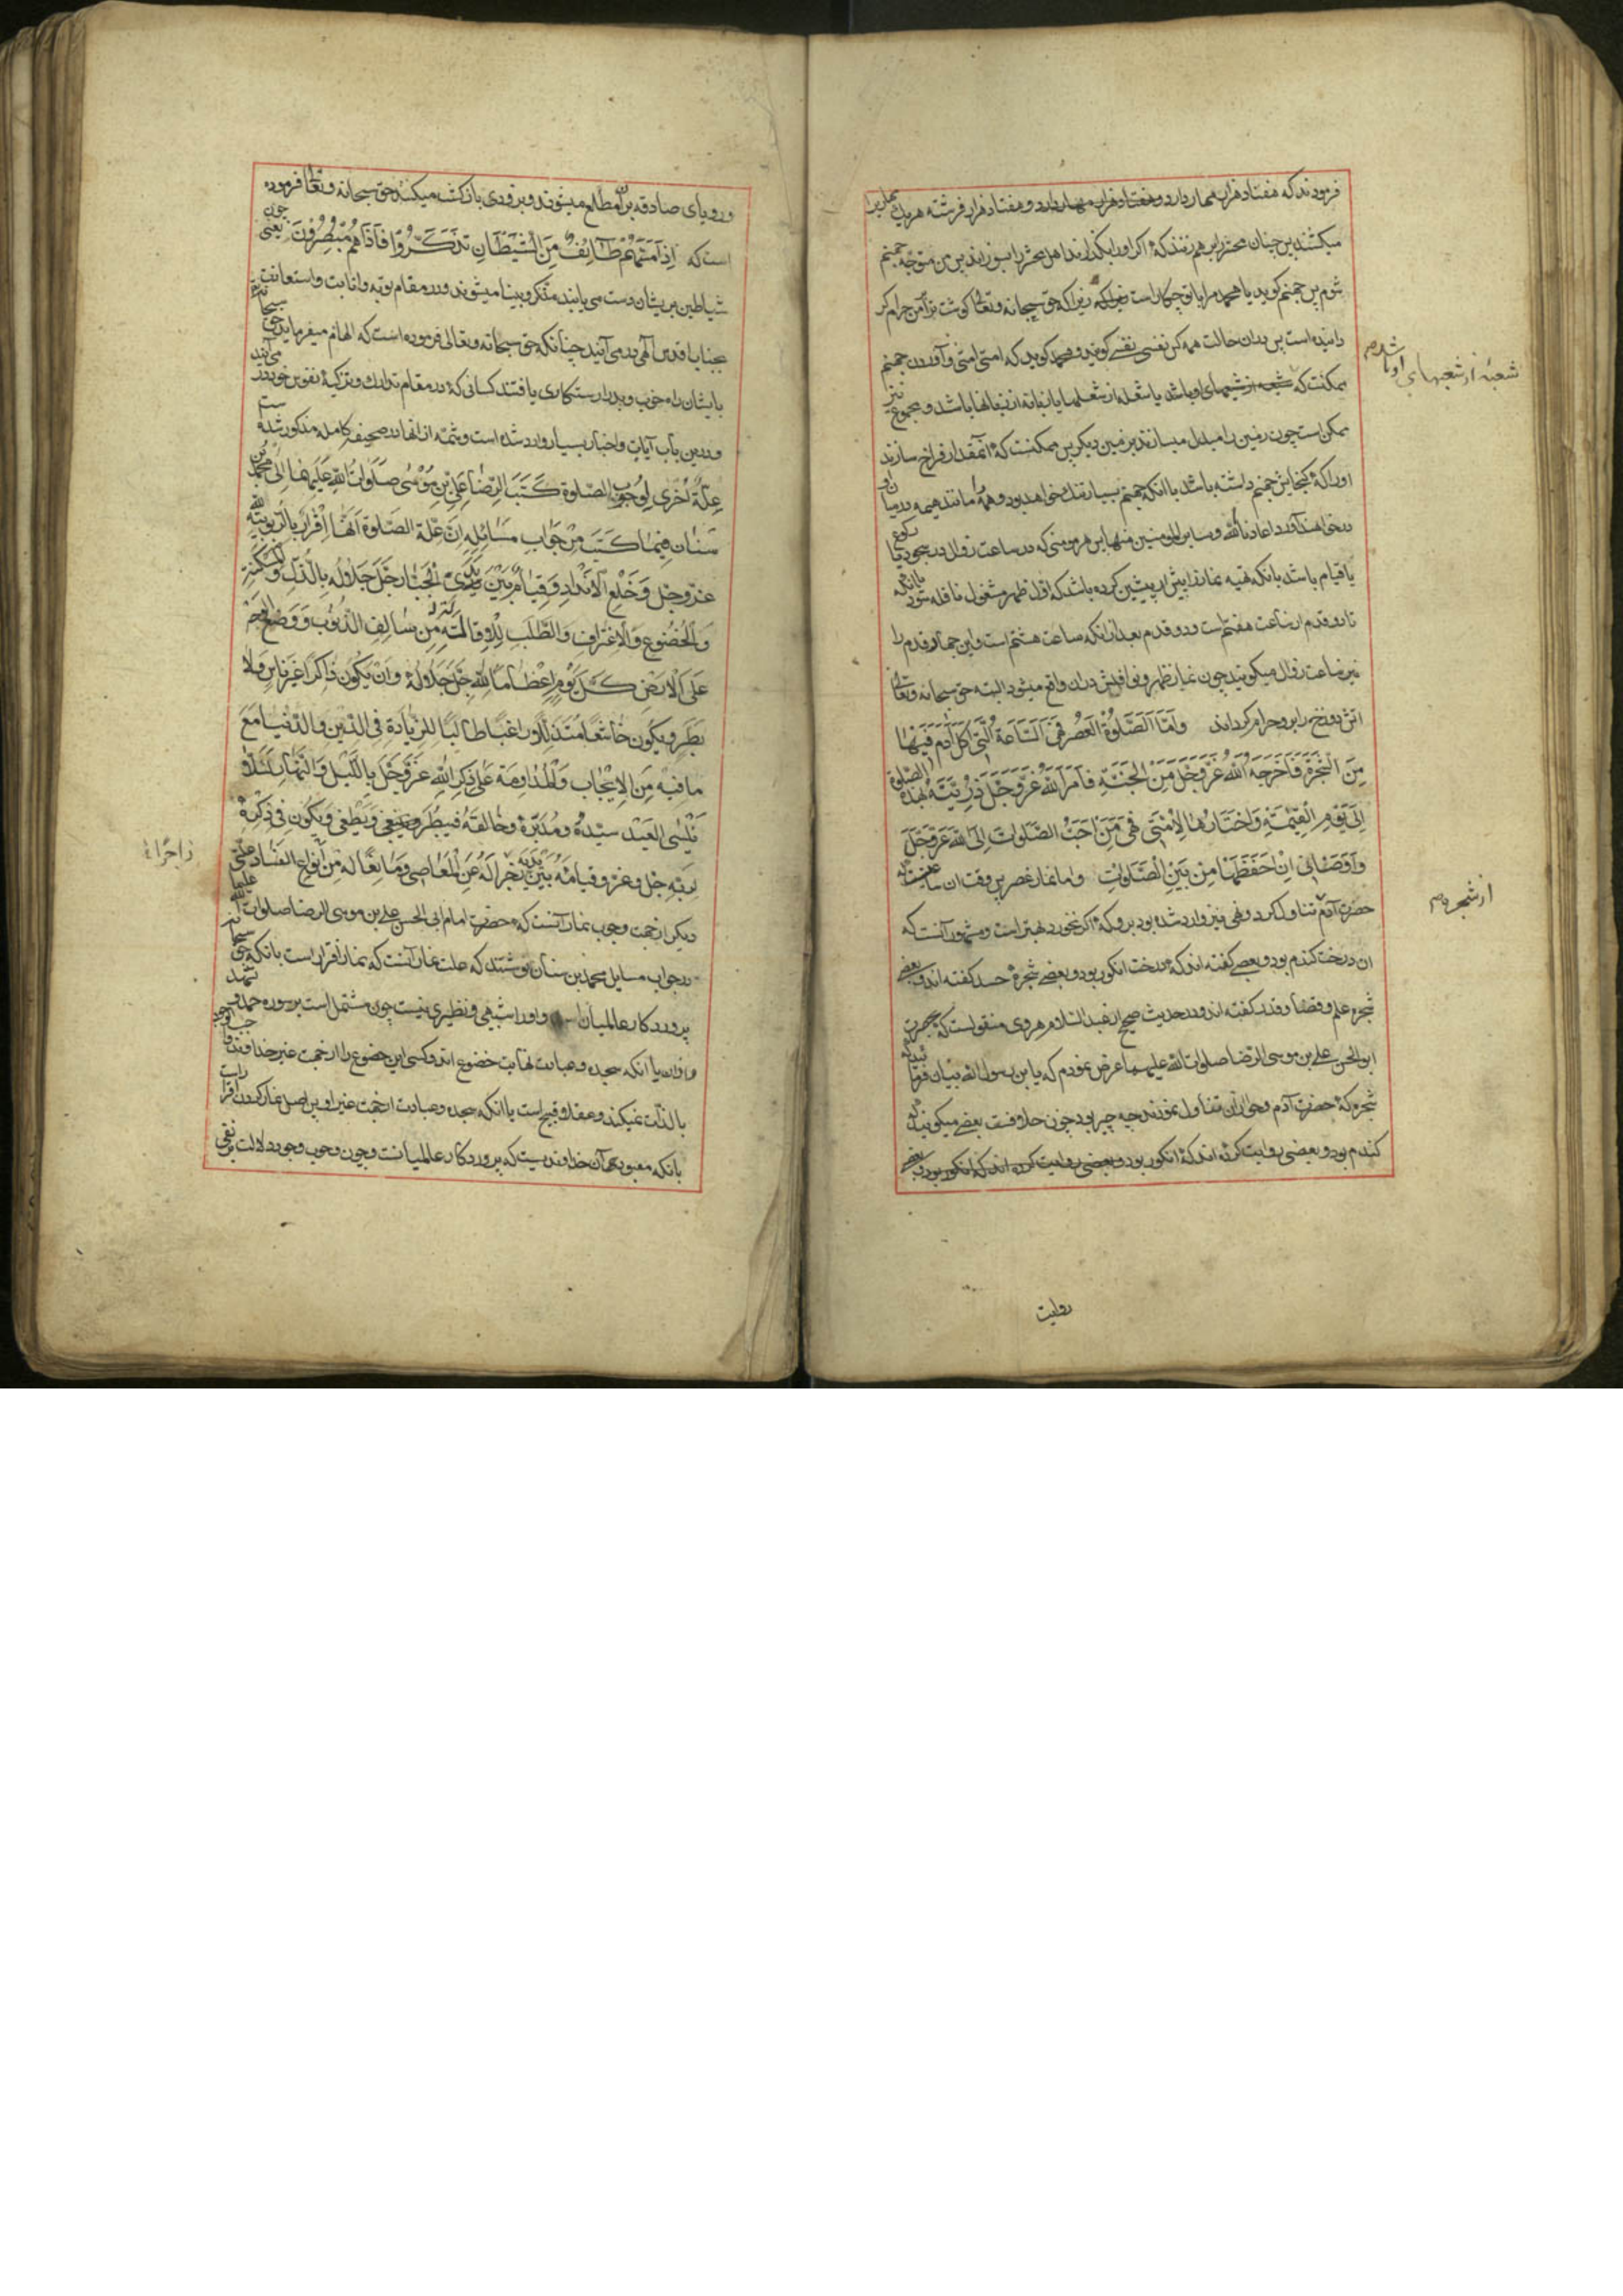 فرمودند که هفتاد هزار مهار دارد و هفتاد هزار مهار دارد و هفتاد هزار فرشته هر یک
میکشند پس چنان محشر را بر هم زنند که اگر او را بگذارند اهل محشر را بسوزاند پس من متوجه جهنم
شوم پس جهنم گوید یا محمد مرا با تو چکار است زیرا که حق سبحانه و تعالی گوشت ترا بر من حرام کر
دانیده است پس در آن حالت همه کس نفسی نفسی گویند و محمد گوید که امتی امتی و آوردن جهنم
ممکنست که شعبه از شعبهای او باشد یا شعله از شعلها یا زبانه از زبانها باشد و مجموع نیز
ممکن است چون زمین را مبدل میسازند بزمین دیگر پس ممکنست که آنقدر فراخ سازند
او را که گنجایش جهنم داشته باشد با آنکه جهنم بسیار تنک خواهد بود و همه مانند هیمه در میان
در خواهند آورد اعاذنا الله و سایر المؤمنین منها پس هر مومنی که در ساعت زوال در سجود یا رکوع
یا قیام باشد بآنکه تهیه نماز را پیش از پیشین کرده باشد که اول ظهر مشغول نافله شود یا آنکه
تا دو قدم از ساعت هفتم است و دو قدم بعد از آنکه ساعت هشتم است و این چهار قدم را
نیز ساعت زوال میگویند چون نماز ظهر و نوافلش در آن واقع میشود البته حق سبحانه و تعالی
آتش دوزخ را بر و حرام گرداند وَاَمَّا الصَّلٰوةُ الْعَصْرِ فَهِیَ السَّاعَةُ الَّتِی اَکَلَ آدَمُ فِیهَا
مِنَ الشَّجَرَةِ فَاَخْرَجَهُ اللهُ عَزَّ وَجَلَّ مِنَ الْجَنَّةِ فَاَمَرَ اللهُ عَزَّ وَجَلَّ ذُرِّیَّتَهُ بِهٰذِهِ الصَّلٰوةِ
اِلٰی یَوْمِ الْقِیٰمَةِ وَاخْتَارَهَا لِاُمَّتِی فَهِیَ مِنْ اَحَبِّ الصَّلَوَاتِ اِلَی اللهِ عَزَّ وَجَلَّ
وَاَوْصَانِی اَنْ اَحْفَظَهَا مِنْ بَیْنِ الصَّلَوَاتِ و اما نماز عصر پس وقت آن ساعتیست که
حضرت آدم تناول کرد و نهی نیز وارد شده بود برو که اگر نخورد بهتر است و مشهور آنست که
آن درخت گندم بود و بعضی گفته اند که درخت انگور بود و بعضی شجرهٔ حسد گفته اند و بعضی
شجره علم و قضا و قدر گفته اند و در حدیث صحیح از عبد السلام هروی منقولست که بحضرت
ابو الحسن علی بن موسی الرضا صلوات الله علیهما عرض نمودم که یا بن رسول الله بیان فرمائید که
شجره که حضرت آدم و حوا از آن تناول نمودند چه چیز بود چون خلافست بعضی میگویند که
گندم بود و بعضی روایت کرده اند که انگور بود و بعضی روایت کرده اند که انگور بود و بعضی
شعبهٔ از شعبهای او باشد
از شجره
روایت
و رویای صادقه بر آن مطلع میشوند و بزودی بازگشت میکنند حق سبحانه و تعالی فرموده
است که اِذَا مَسَّهُمْ طَائِفٌ مِنَ الشَّیْطَانِ تَذَکَّرُوا فَاِذَا هُمْ مُبْصِرُونَ یعنی چون
شیاطین بر یشان دست می یابند متذکر و بینا میشوند و در مقام توبه و انابت و استعانت
بجناب اقدس الهی در می آیند چنانکه حق سبحانه و تعالی فرموده است که الهام میفرماید حق سبحانه
بایشان راه خوب و بد را رستگاری یافتند کسانی که در مقام تدارک و تزکیهٔ نفوس خود در می آیند
و درین باب آیات و اخبار بسیار وارد شده است و تتمه از آنها در صحیفه کامله مذکور شده
عِلَّةٌ اُخْرٰی لِوُجُوبِ الصَّلٰوةِ کَتَبَ الرِّضَا عَلِیُّ بْنُ مُوسٰی صَلَوَاتُ اللهِ عَلَیْهِمَا اِلٰی مُحَمَّدِ بْنِ
سِنَانٍ فِیمَا کَتَبَ مِنْ جَوَابِ مَسَائِلِهِ اِنَّ عِلَّةَ الصَّلٰوةِ اَنَّهَا اِقْرَارٌ بِالرُّبُوبِیَّةِ لِلّٰهِ
عَزَّ وَجَلَّ وَخَلْعِ الْاَنْدَادِ وَقِیَامٌ بَیْنَ یَدَیِ الْجَبَّارِ جَلَّ جَلَالُهُ بِالذُّلِّ وَالْمَسْکَنَةِ
وَالْخُضُوعِ وَالْاِعْتِرَافِ وَالطَّلَبِ لِلْاِقَالَةِ مِنْ سَالِفِ الذُّنُوبِ وَوَضْعُ الْوَجْهِ
عَلَی الْاَرْضِ کُلَّ یَوْمٍ اِعْظَامًا لِلّٰهِ جَلَّ جَلَالُهُ وَاَنْ یَکُونَ ذَاکِرًا غَیْرَ نَاسٍ وَلَا
بَطَرٍ وَیَکُونَ خَاشِعًا مُتَذَلِّلًا رَاغِبًا طَالِبًا لِلزِّیَادَةِ فِی الدِّینِ وَالدُّنْیَا مَعَ
مَا فِیهِ مِنَ الْاِیْجَابِ وَالْمُدَاوَمَةِ عَلٰی ذِکْرِ اللهِ عَزَّ وَجَلَّ بِاللَّیْلِ وَالنَّهَارِ لِئَلَّا
یَنْسَی الْعَبْدُ سَیِّدَهُ وَمُدَبِّرَهُ وَخَالِقَهُ فَیَبْطَرَ وَیَطْغٰی وَیَکُونَ فِی ذِکْرِهِ
لِرَبِّهِ جَلَّ وَعَزَّ وَقِیَامِهِ بَیْنَ یَدَیْهِ زَجْرًا لَهُ عَنِ الْمَعَاصِی وَمَانِعًا لَهُ مِنْ اَنْوَاعِ الْفَسَادِ علتی
دیگر از جهت وجوب نماز آنست که حضرت امام ابی الحسن علی بن موسی الرضا صلوات الله علیهما
در جواب مسایل محمد بن سنان نوشتند که علت نماز آنست که نماز اقرار است بآنکه حق سبحانه
پروردگار عالمیان است و او را شبیهی و نظیری نیست چون مشتمل است بر سوره حمد و تشهد
و اذان یا آنکه سجده و عبادت نهایت خضوع اند و کسی این خضوع را از جهت غیر خداوند واجب
بالذات نمیکند و عقلا قبیح است یا آنکه سجده و عبادت از جهت غیر او پس اصل نماز کردن اقرار است
بآنکه معبود همان خداوندیست که پروردگار عالمیانست و چون وجوب وجود دلالت بر نفی
زاجرًا